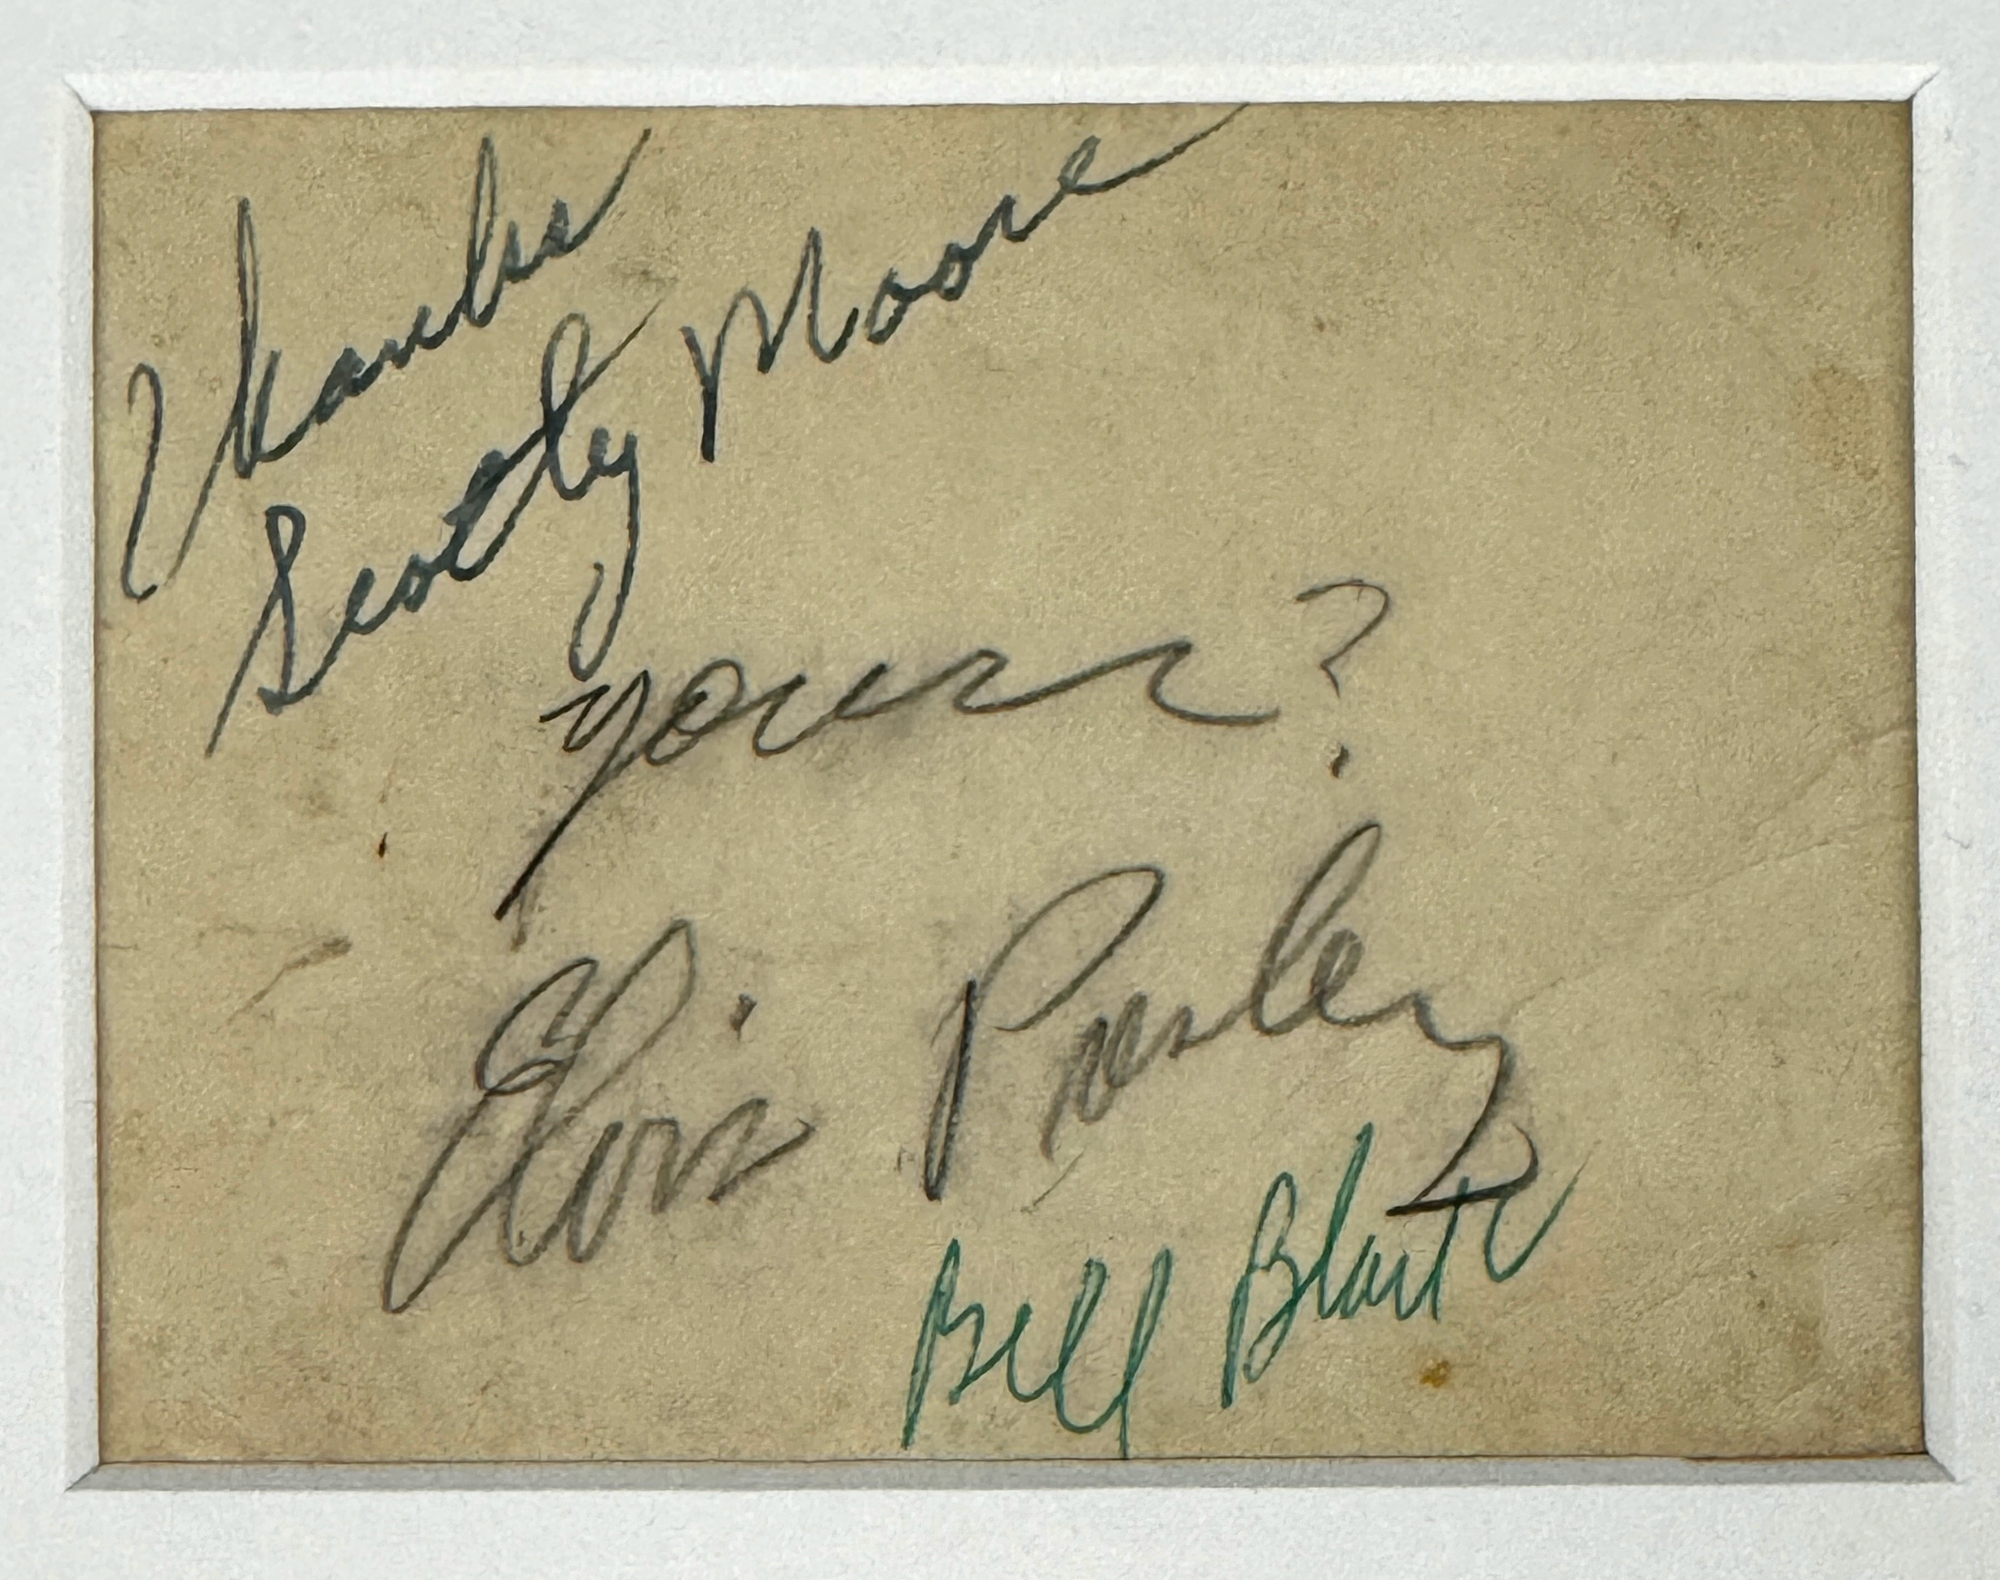 Thanks
Scotty Moore
yours?
Elvis Presley
Bill Black